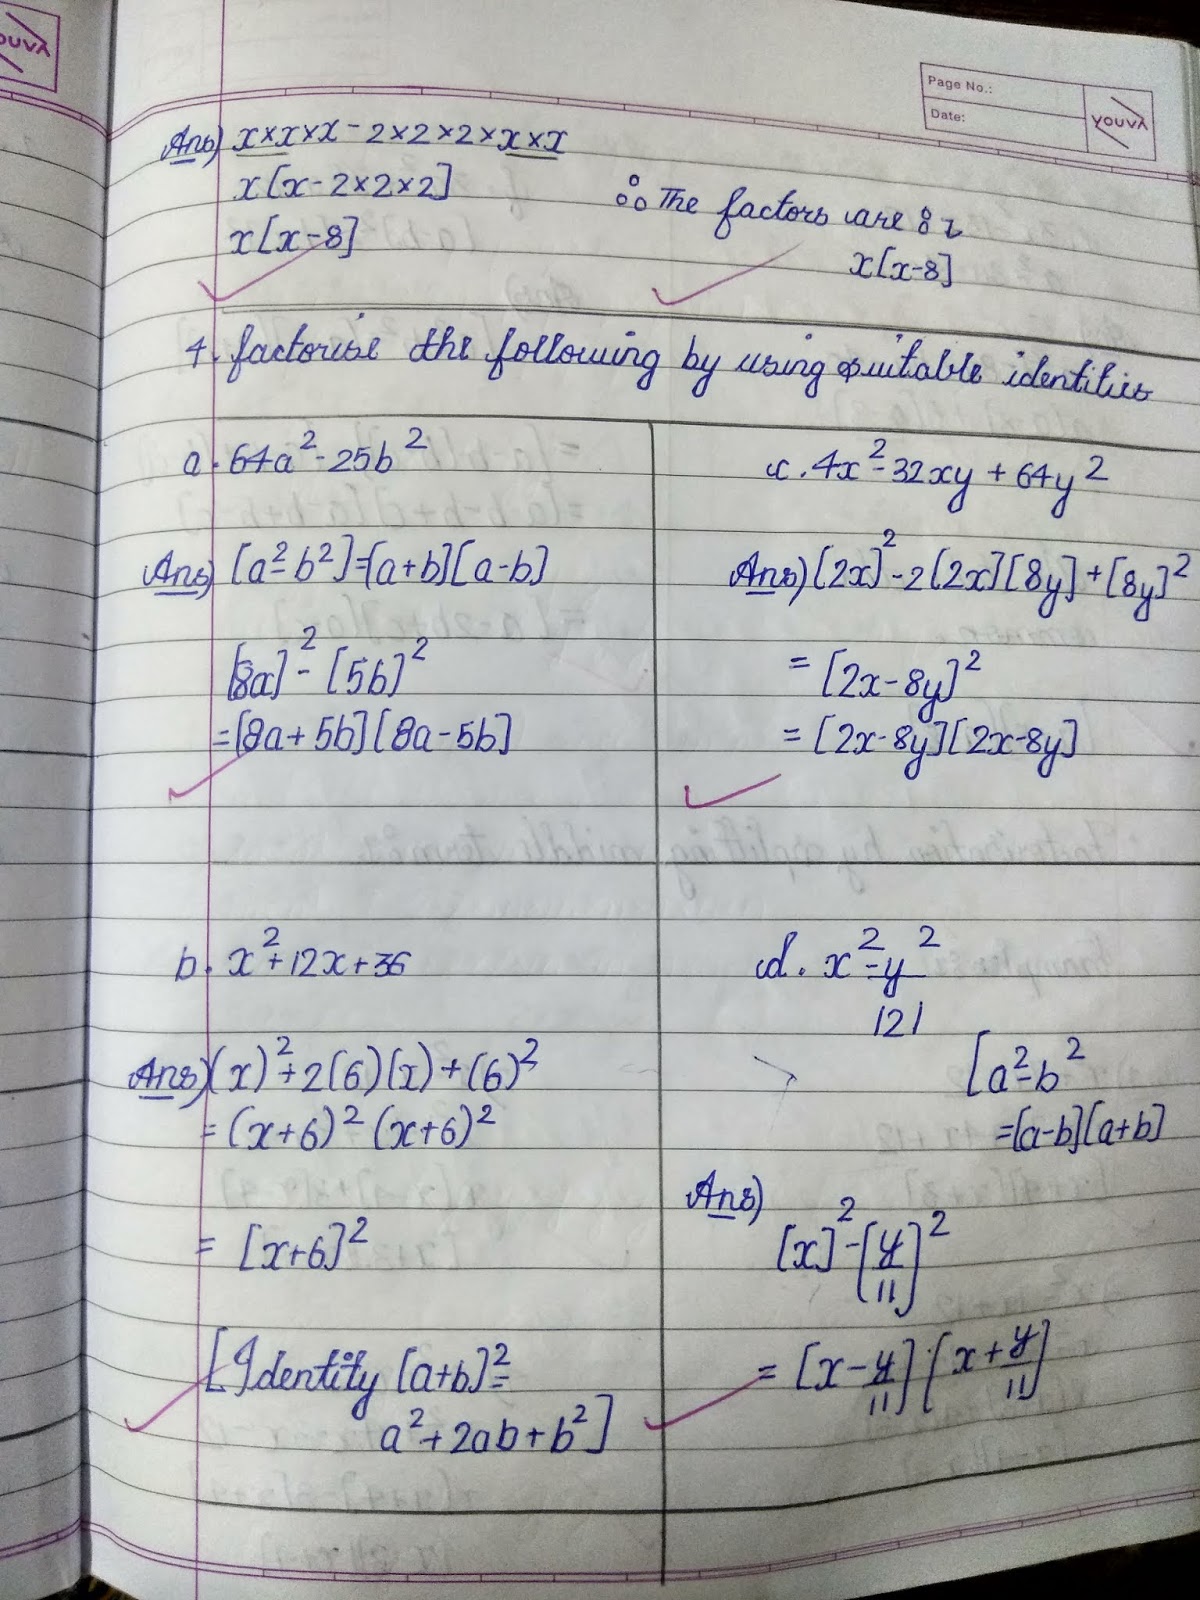 YOUVA
Page No.:
Date:
YOUVA
Ans) x×x×x - 2×2×2×x×x
x[x-2×2×2]
x[x-8]
∴ The factors are :
x[x-8]
4. factorise the following by using suitable identities
a. 64a² - 25b²
Ans) [a²-b²]=[a+b][a-b]
[8a]² - [5b]²
=[8a+5b][8a-5b]
c. 4x² - 32xy + 64y²
Ans) [2x]² - 2[2x][8y] + [8y]²
= [2x-8y]²
= [2x-8y][2x-8y]
b. x² + 12x + 36
Ans) (x)² + 2(6)(x) + (6)²
= (x+6)² (x+6)²
= [x+6]²
[Identity [a+b]² =
a² + 2ab + b²]
d. x² - y²
121
[a²-b²
=[a-b][a+b]
Ans)
[x]² - [y/11]²
= [x - y/11] [x + y/11]